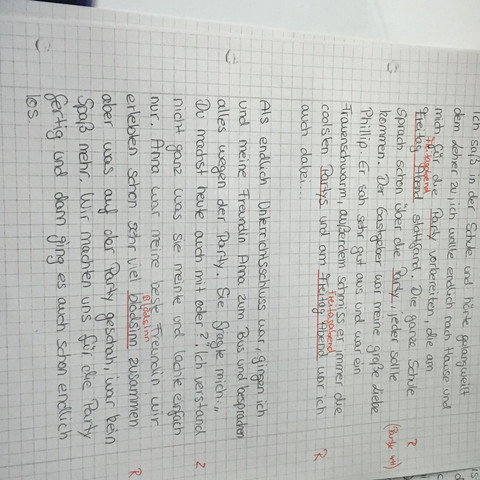 Ich saß in der Schule und hörte gelangweilt
dem Lehrer zu, ich wollte endlich nach Hause und
mich für die Party vorbereiten, die am
Freitagabend
Freitag Abend stattfand. Die ganze Schule R
sprach schon über die Party, jeder sollte (Party W)
kommen. Der Gastgeber war meine große Liebe
Phillip. Er sah sehr gut aus und war ein
Frauenschwarm, außerdem schmiss er immer die
Freitagabend
coolsten Partys und am Freitag Abend war ich R
auch dabei...
Als endlich Unterrichtsschluss war, gingen ich
und meine Freundin Anna zum Bus und besprachen
alles wegen der Party. Sie fragte mich: „
Du machst heute auch mit oder?". Ich verstand Z
nicht ganz was sie meinte und lachte einfach
nur. Anna war meine beste Freundin wir
Blödsinn
erlebten schon sehr viel blödsinn zusammen R
aber was auf der Party geschah, war kein
Spaß mehr. Wir machten uns für die Party
fertig und dann ging es auch schon endlich
los.